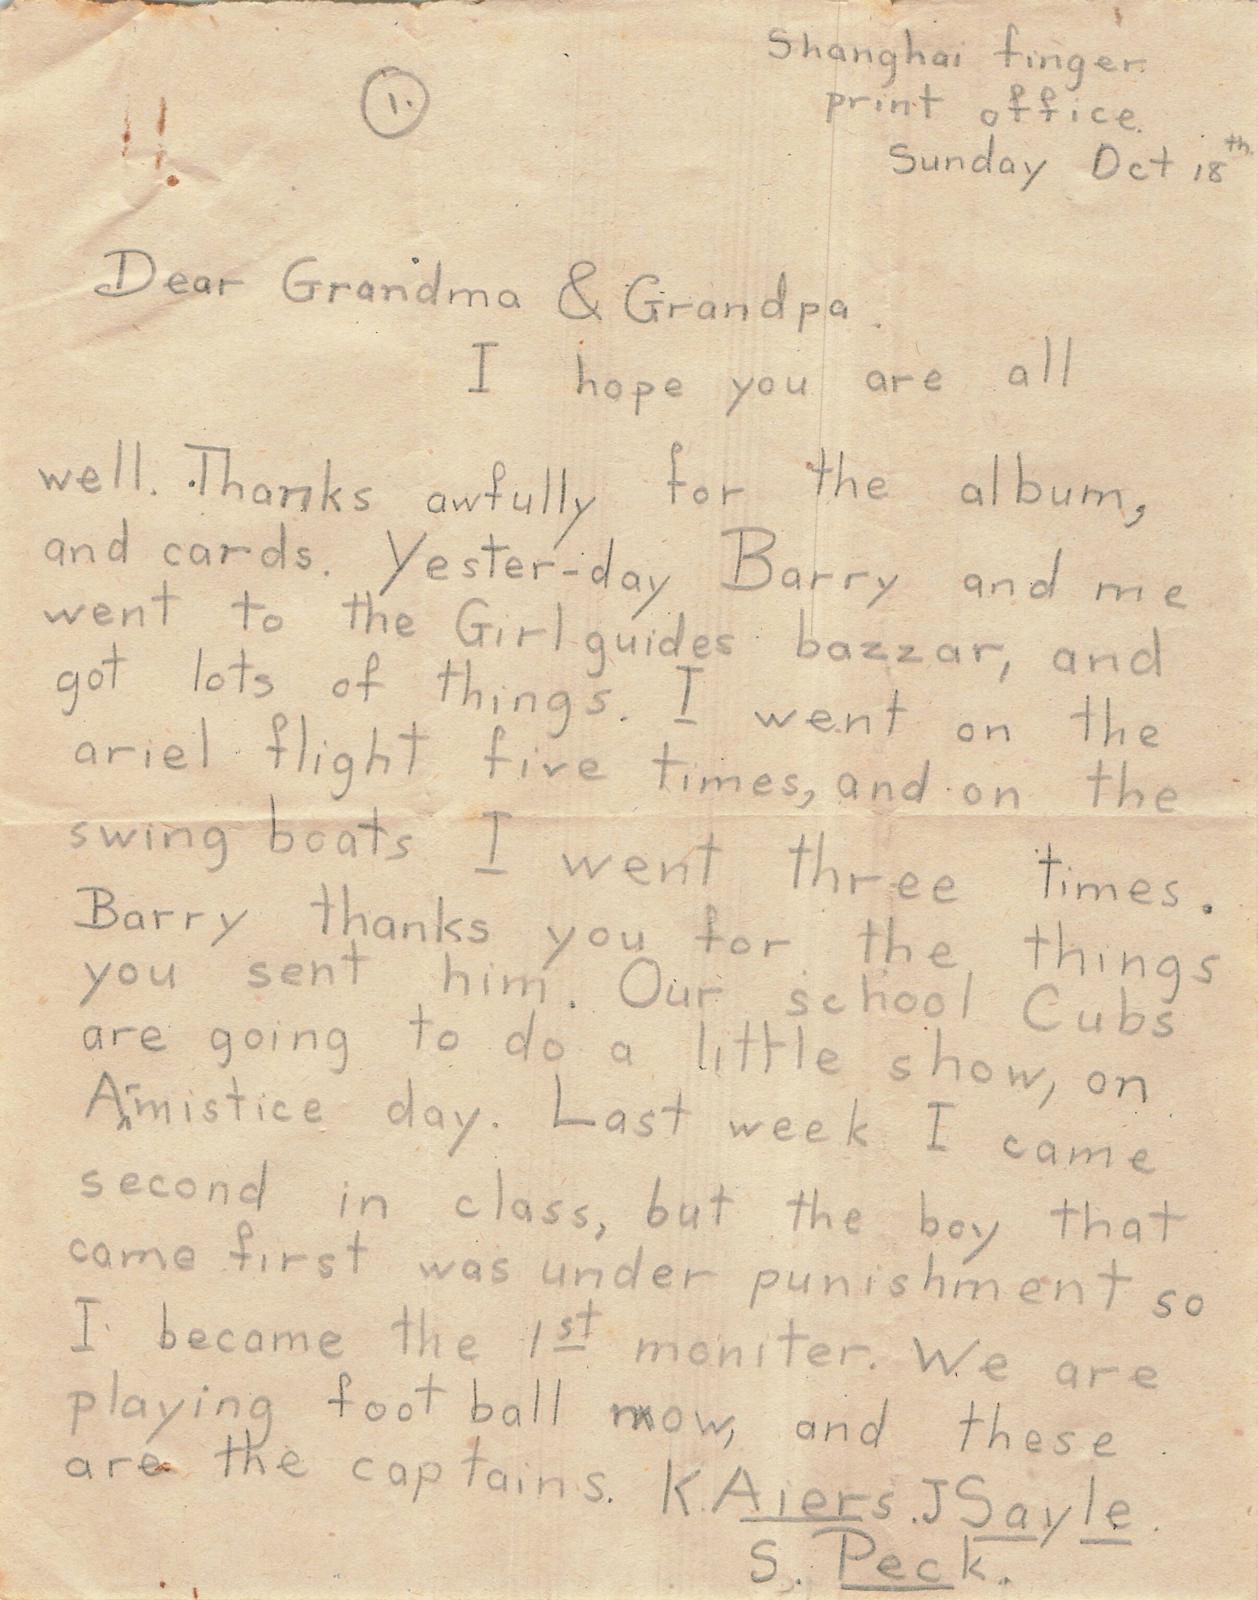 1.
Shanghai finger
print office.
Sunday Oct 18th
Dear Grandma & Grandpa.
I hope you are all
well. Thanks awfully for the album,
and cards. Yester-day Barry and me
went to the Girl guides bazzar, and
got lots of things. I went on the
ariel flight five times, and on the
swing boats I went three times.
Barry thanks you for the things
you sent him. Our school Cubs
are going to do a little show, on
Armistice day. Last week I came
second in class, but the boy that
came first was under punishment so
I became the 1st moniter. We are
playing foot ball now, and these
are the captains. K. Aiers. J Sayle.
S. Peck.